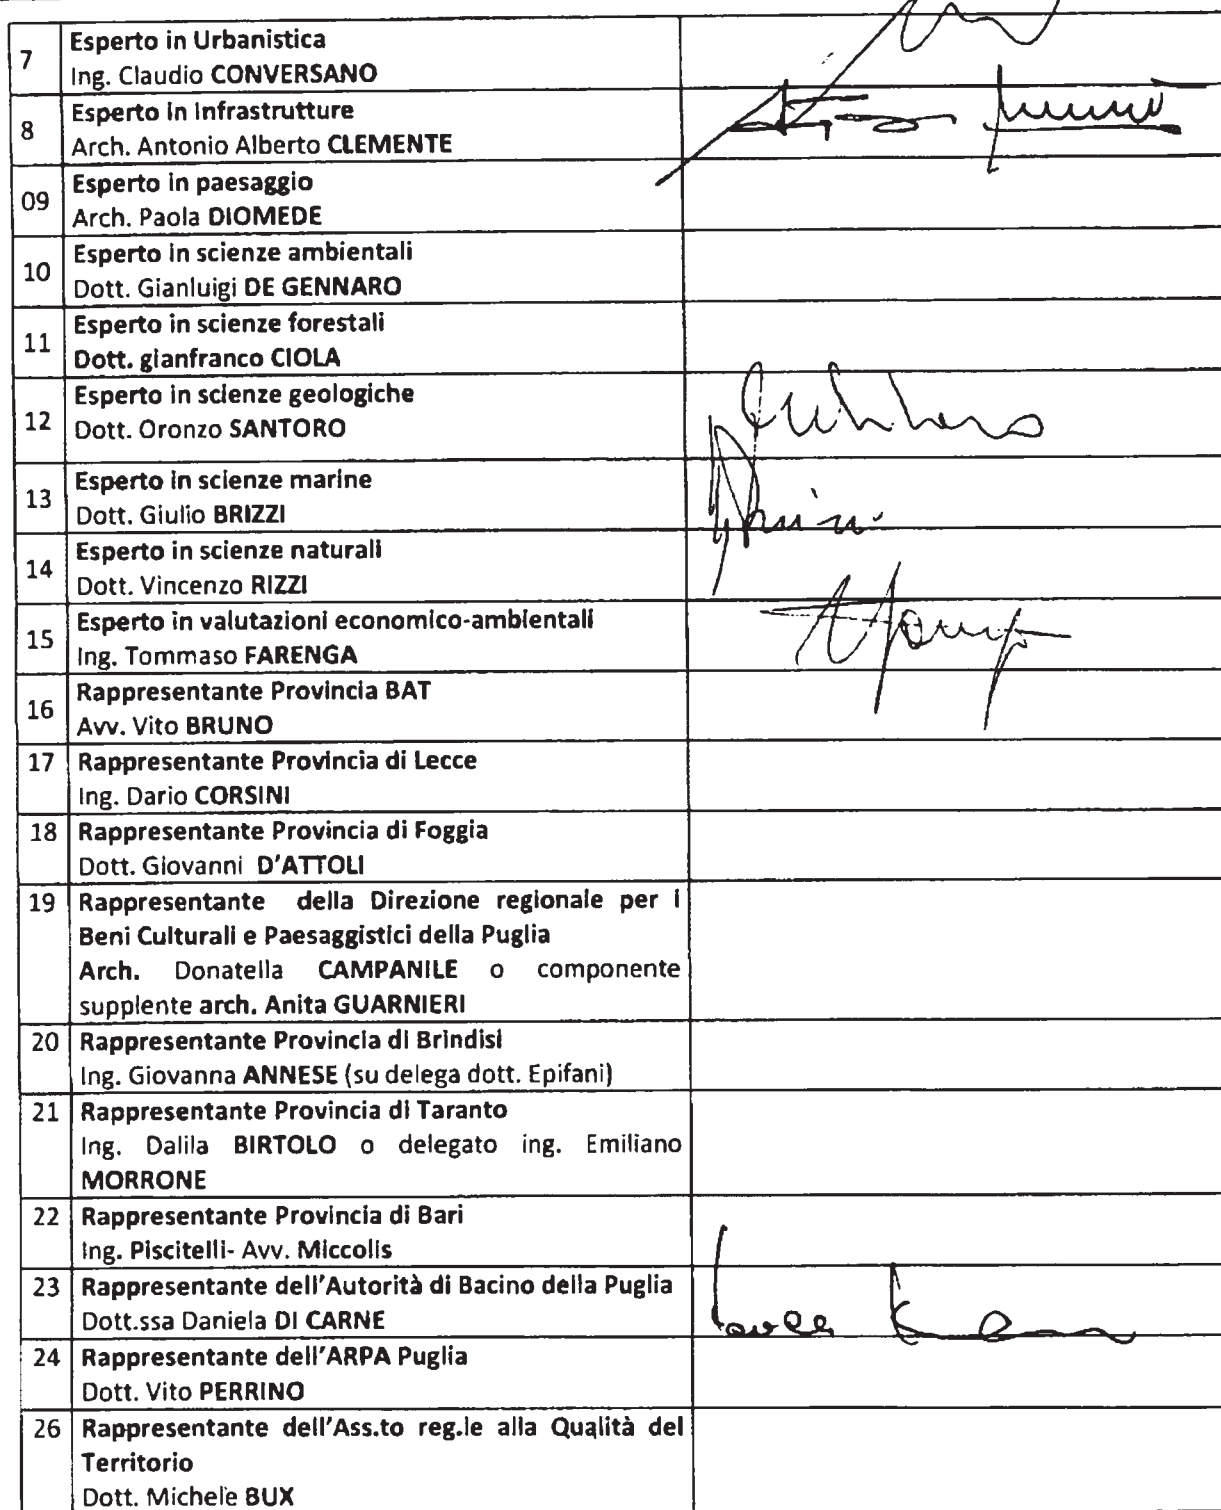 7
Esperto in Urbanistica
Ing. Claudio CONVERSANO
8
Esperto in Infrastrutture
Arch. Antonio Alberto CLEMENTE
09
Esperto in paesaggio
Arch. Paola DIOMEDE
10
Esperto in scienze ambientali
Dott. Gianluigi DE GENNARO
11
Esperto in scienze forestali
Dott. gianfranco CIOLA
12
Esperto in scienze geologiche
Dott. Oronzo SANTORO
13
Esperto in scienze marine
Dott. Giulio BRIZZI
14
Esperto in scienze naturali
Dott. Vincenzo RIZZI
15
Esperto in valutazioni economico-ambientali
Ing. Tommaso FARENGA
16
Rappresentante Provincia BAT
Avv. Vito BRUNO
17 Rappresentante Provincia di Lecce
Ing. Dario CORSINI
18 Rappresentante Provincia di Foggia
Dott. Giovanni D'ATTOLI
19 Rappresentante della Direzione regionale per i
Beni Culturali e Paesaggistici della Puglia
Arch. Donatella CAMPANILE o componente
supplente arch. Anita GUARNIERI
20 Rappresentante Provincia di Brindisi
Ing. Giovanna ANNESE (su delega dott. Epifani)
21 Rappresentante Provincia di Taranto
Ing. Dalila BIRTOLO o delegato ing. Emiliano
MORRONE
22 Rappresentante Provincia di Bari
Ing. Piscitelli- Avv. Miccolis
23 Rappresentante dell'Autorità di Bacino della Puglia
Dott.ssa Daniela DI CARNE
24 Rappresentante dell'ARPA Puglia
Dott. Vito PERRINO
26 Rappresentante dell'Ass.to reg.le alla Qualità del
Territorio
Dott. Michele BUX